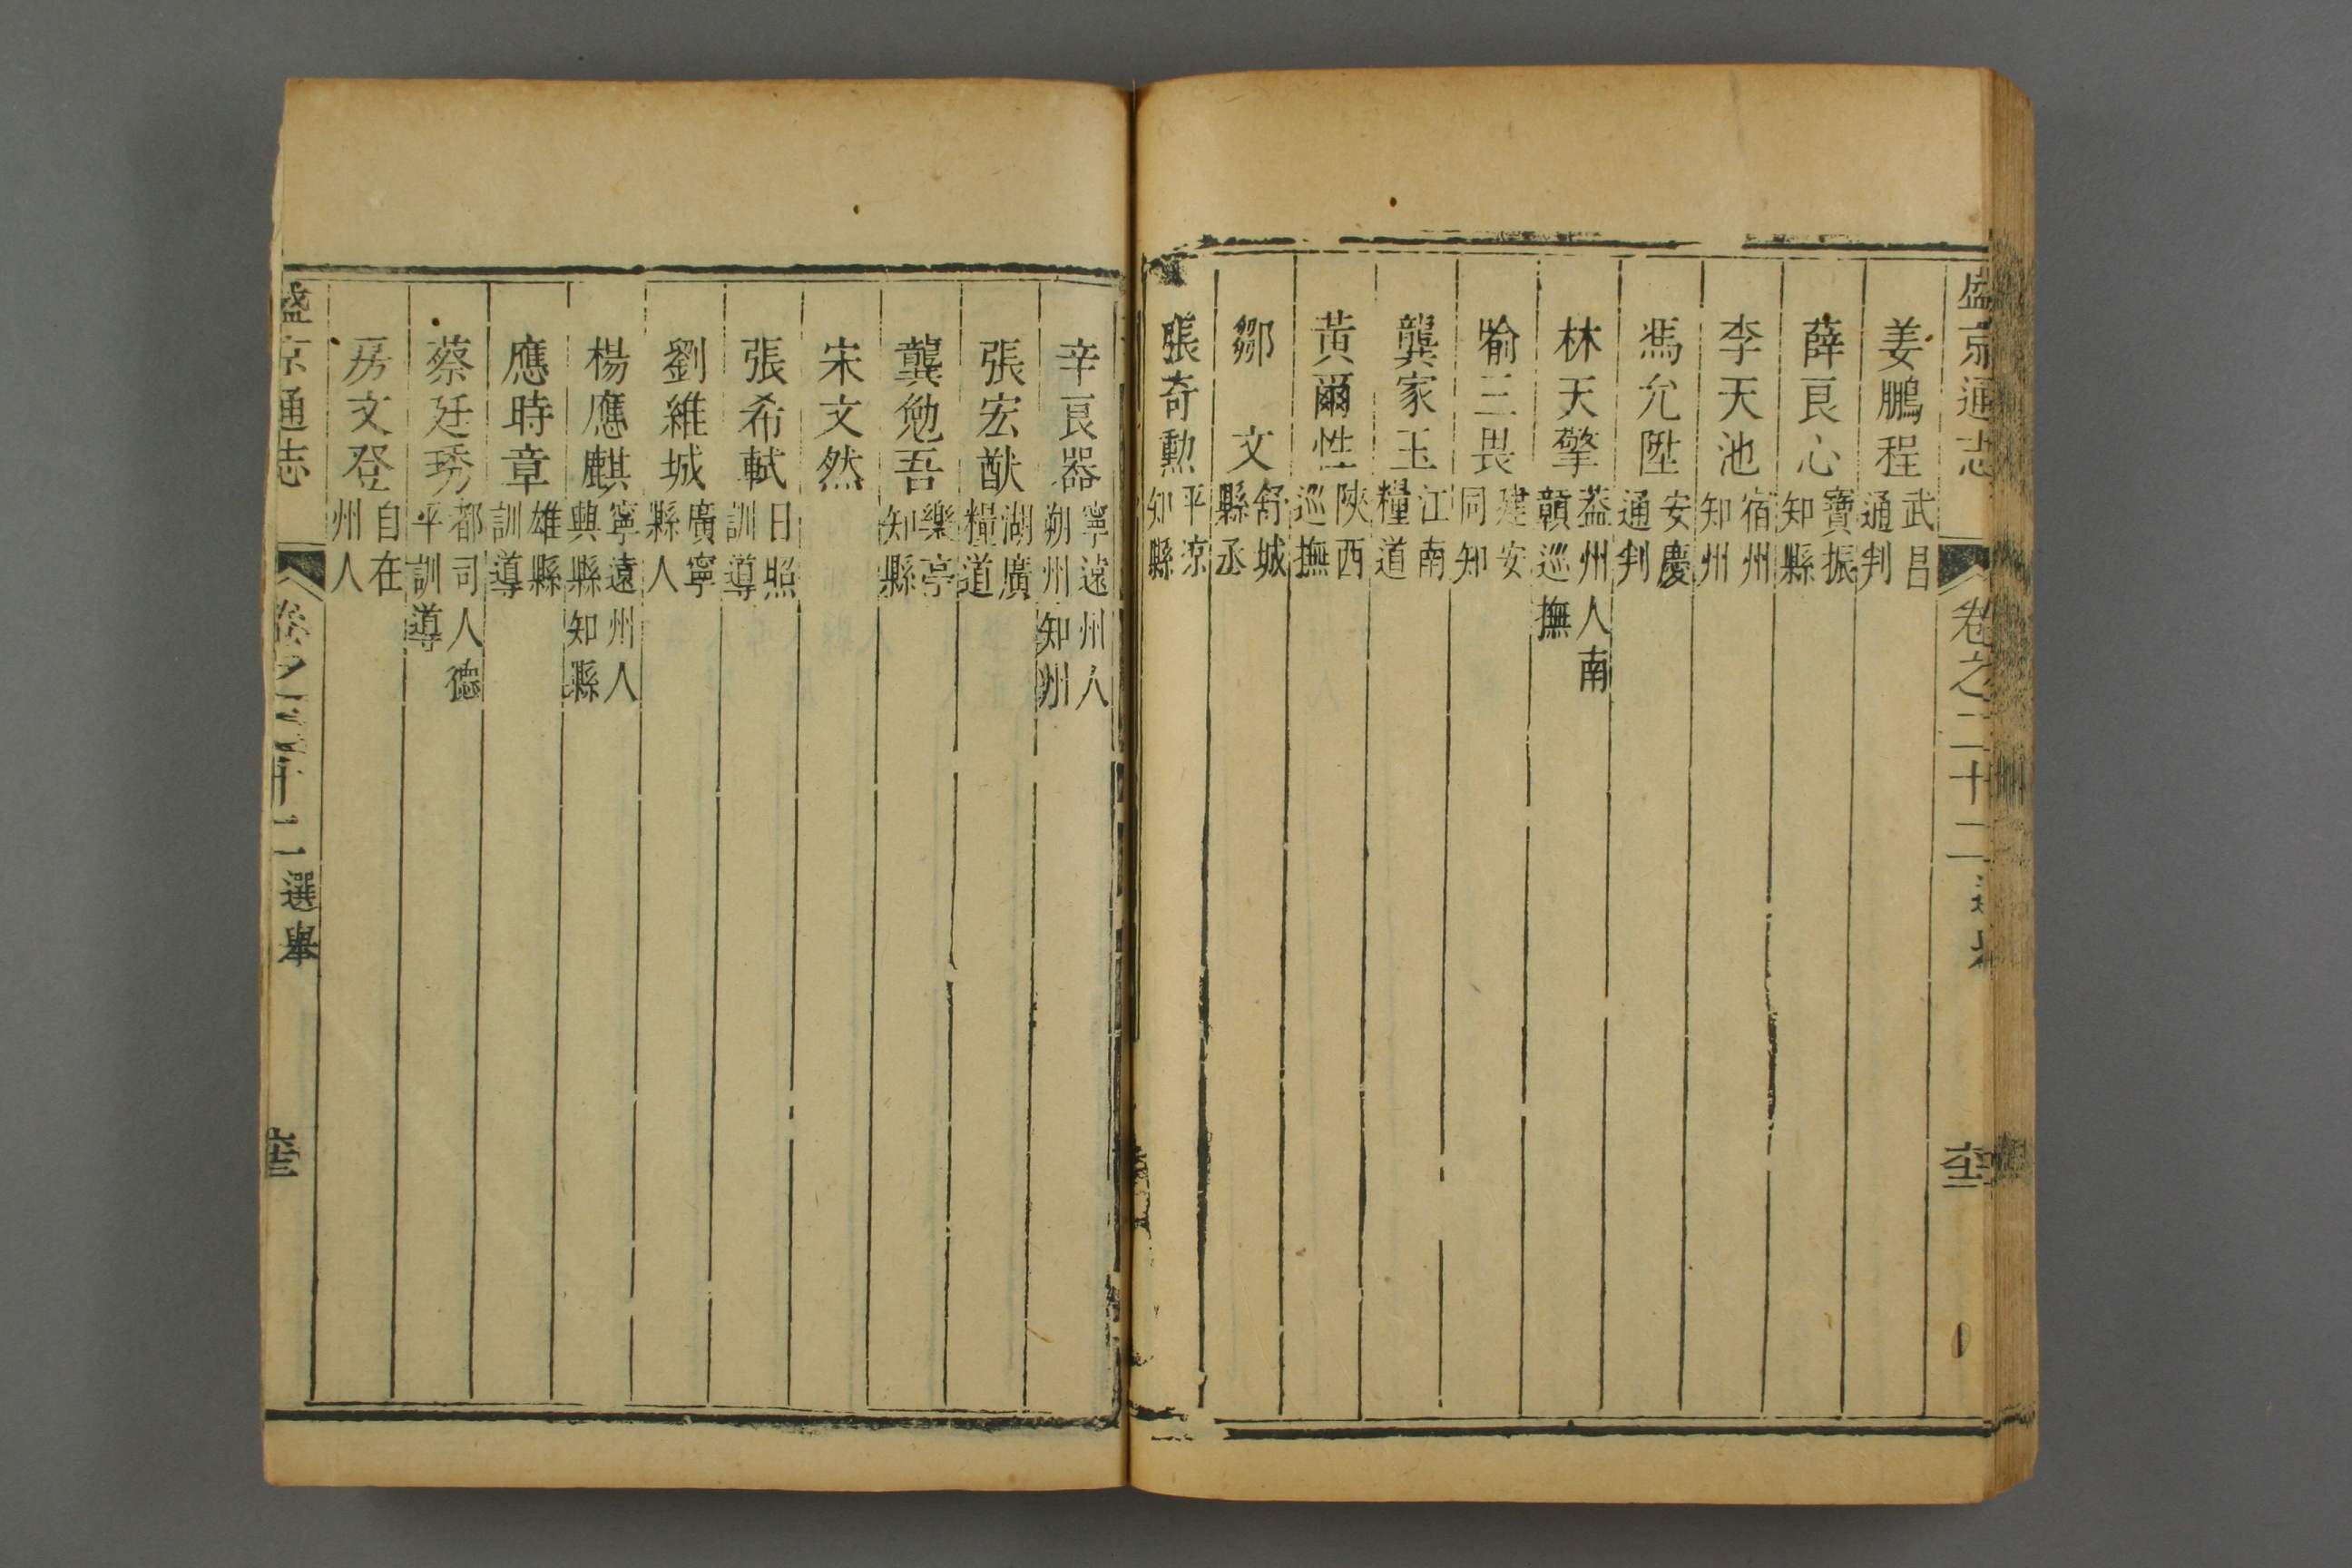 盛京通志 卷之二十二
姜鵬程 武昌通判
薛良心 寶振知縣
李天池 宿州知州
馮允陞 安慶通判
林天擎 葢州人南贛巡撫
喻三畏 建安同知
龔家玉 江南糧道
黃爾性 陝西巡撫
鄒文 舒城縣丞
張奇勲 平凉知縣
辛良器 寧遠州人朔州知州
張宏猷 湖廣糧道
龔勉吾 樂亭知縣
宋文然
張希軾 日照訓導
劉維城 廣寧縣人
楊應麒 寧遠州人興縣知縣
應時章 雄縣訓導
蔡廷琇 都司人德平訓導
房文登 自在州人
盛京通志 卷之二十二 選舉